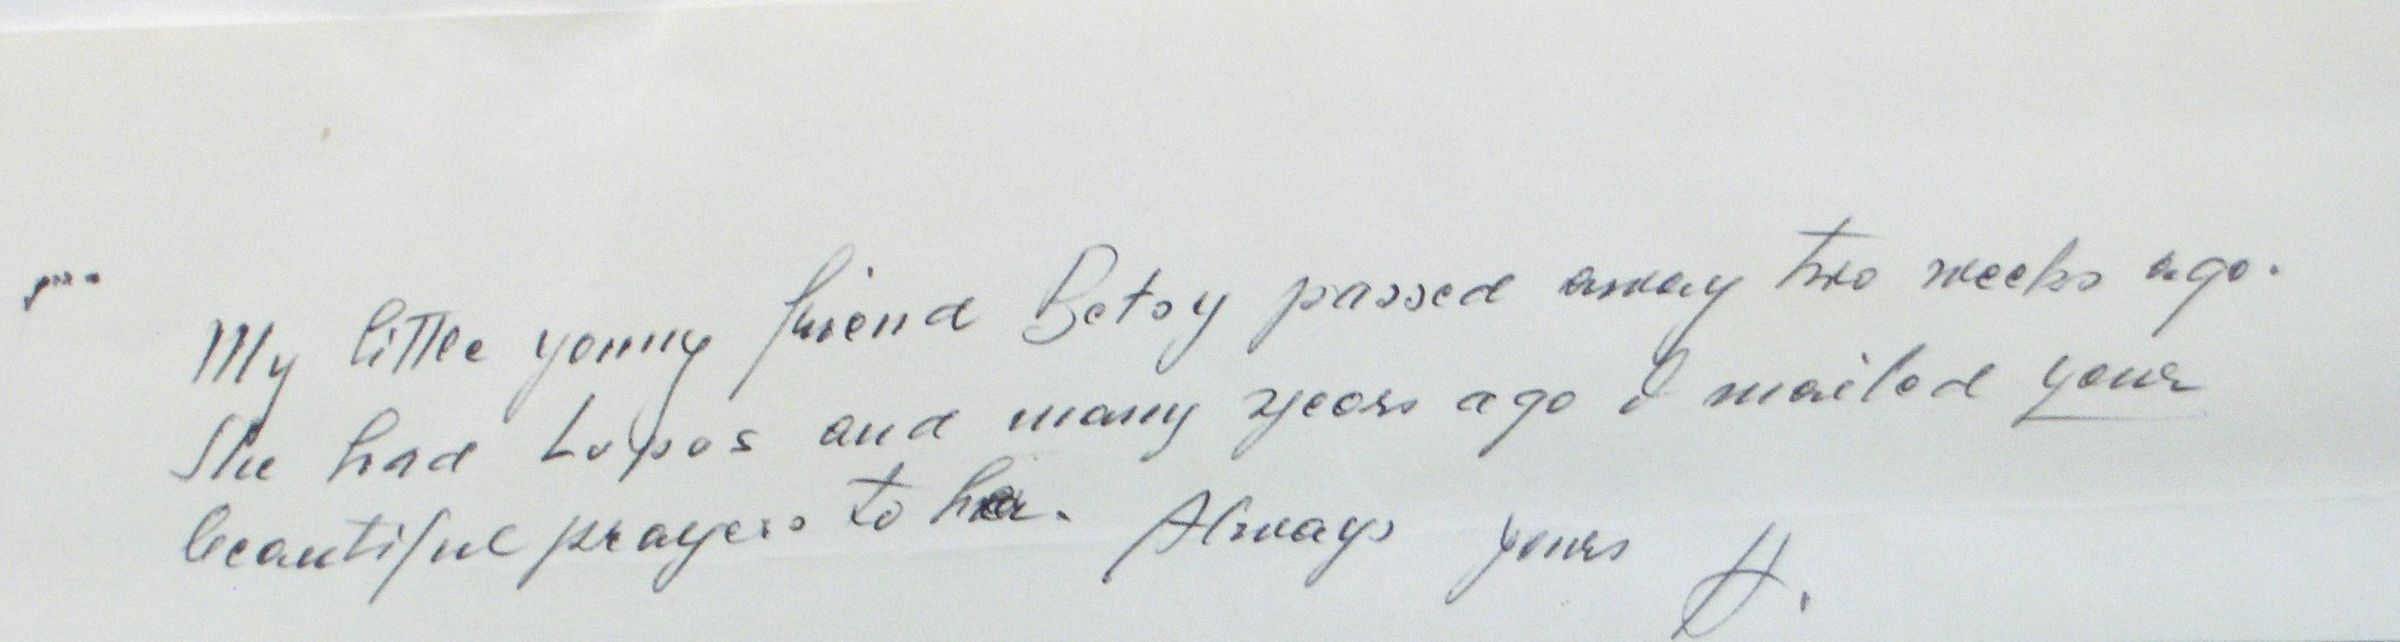 My little young friend Betsy passed away two weeks ago.
She had Lupos and many years ago I mailed your
beautiful prayers to her. Always yours H.